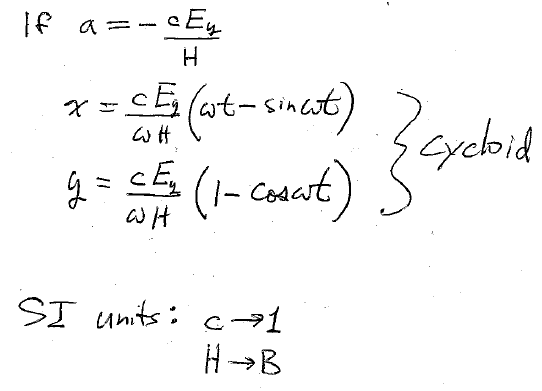 If a = - cE_y / H
x = cE_y / ωH (ωt - sin ωt)
y = cE_y / ωH (1 - cos ωt)
} Cycloid
SI units: c → 1
H → B